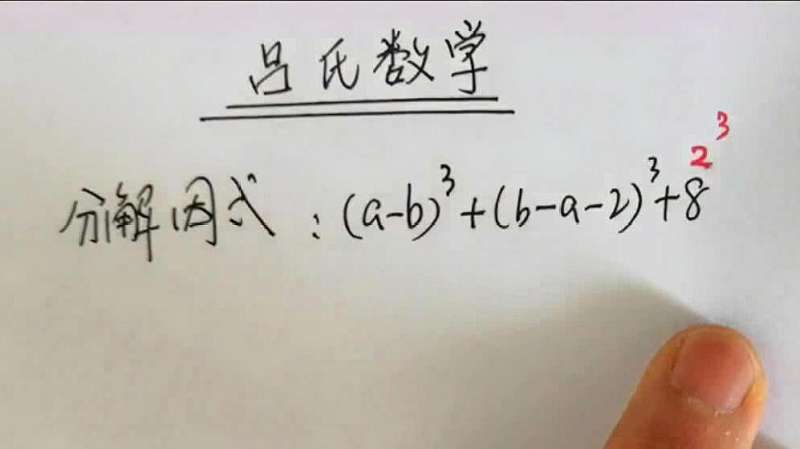 吕氏数学
分解因式:(a-b)³+(b-a-2)³+8
2³